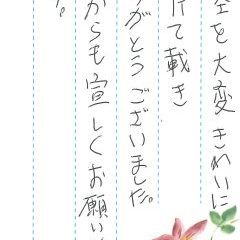 を大変きれいに
て載き
がとうございました。
からも宜しくお願い
。